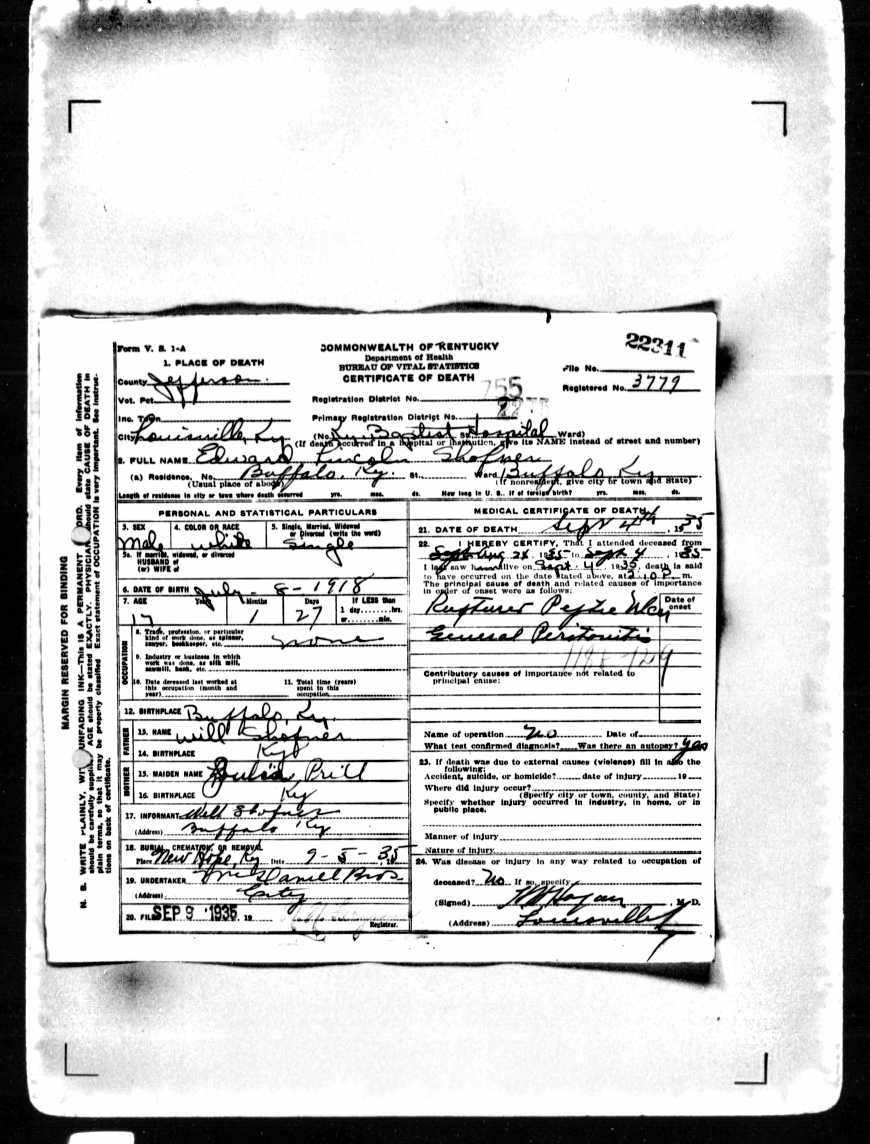 Form V. S. 1-A
COMMONWEALTH OF KENTUCKY
Department of Health
BUREAU OF VITAL STATISTICS
CERTIFICATE OF DEATH
22311
File No.
Registered No. 3779
1. PLACE OF DEATH
County Jefferson
Vot. Pct.
Inc. Town
City Louisville, Ky.
755
Registration District No.
Primary Registration District No.
(No. Ky. Baptist Hospital St. Ward)
(If death occurred in a hospital or institution, give its NAME instead of street and number)
2. FULL NAME Edward Lincoln Shofner
(a) Residence. No. Buffalo, Ky. St. Ward Buffalo Ky
(Usual place of abode) (If nonresident, give city or town and State)
Length of residence in city or town where death occurred yrs. mos. ds. How long in U. S., if of foreign birth? yrs. mos. ds.
PERSONAL AND STATISTICAL PARTICULARS
3. SEX Male
4. COLOR OR RACE white
5. Single, Married, Widowed or Divorced (write the word) single
5a. If married, widowed, or divorced
HUSBAND of
(or) WIFE of
6. DATE OF BIRTH July - 8 - 1918
7. AGE Years 17 Months 1 Days 27 If LESS than 1 day hrs. or min.
OCCUPATION
8. Trade, profession, or particular kind of work done, as spinner, sawyer, bookkeeper, etc. none
9. Industry or business in which work was done, as silk mill, sawmill, bank, etc.
10. Date deceased last worked at this occupation (month and year)
11. Total time (years) spent in this occupation
12. BIRTHPLACE Buffalo, Ky.
FATHER
13. NAME Will Shofner
14. BIRTHPLACE Ky
MOTHER
15. MAIDEN NAME Prill
16. BIRTHPLACE Ky
17. INFORMANT Will Shofner
(Address) Buffalo Ky
18. BURIAL, CREMATION, OR REMOVAL
Place New Hope, Ky Date 9 - 5 - 35
19. UNDERTAKER McDaniel Bros.
(Address) City
20. FILED SEP 9 1935 19
Registrar.
MEDICAL CERTIFICATE OF DEATH
21. DATE OF DEATH Sept 4th, 1935
22. I HEREBY CERTIFY, That I attended deceased from
Aug 24, 1935 to Sept 4, 1935
I last saw him alive on Sept. 4, 1935, death is said
to have occurred on the date stated above, at 2:10 P. m.
The principal cause of death and related causes of importance
in order of onset were as follows:
Date of onset
Ruptured Peptic Ulcer
General Peritonitis
Contributory causes of importance not related to
principal cause:
Name of operation No Date of
What test confirmed diagnosis? Was there an autopsy? Yes
23. If death was due to external causes (violence) fill in also the
following:
Accident, suicide, or homicide? date of injury 19
Where did injury occur?
(Specify city or town, county, and State)
Specify whether injury occurred in industry, in home, or in
public place.
Manner of injury
Nature of injury
24. Was disease or injury in any way related to occupation of
deceased? No If so, specify
(Signed) Hagan, M. D.
(Address) Louisville
MARGIN RESERVED FOR BINDING
N. B. WRITE PLAINLY, WITH UNFADING INK—This is a PERMANENT RECORD. Every item of information
should be carefully supplied. AGE should be stated EXACTLY. PHYSICIANS should state CAUSE OF DEATH in
plain terms, so that it may be properly classified. Exact statement of OCCUPATION is very important. See instruc-
tions on back of certificate.